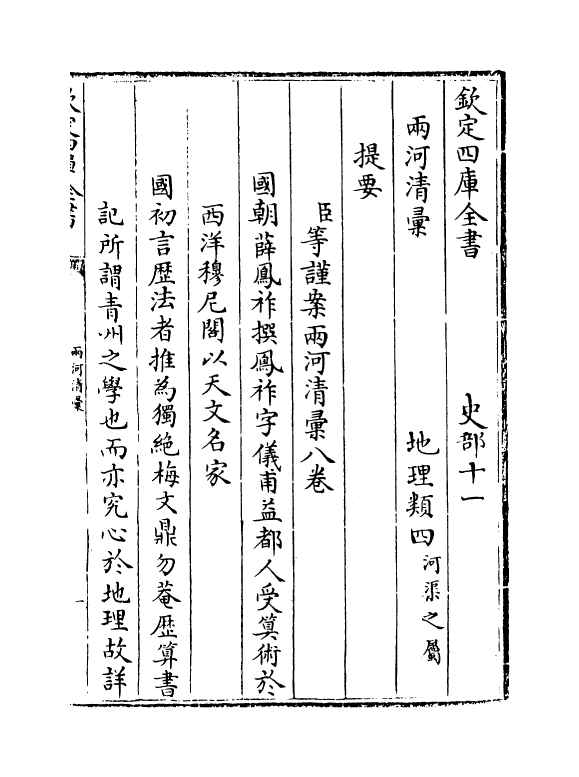 欽定四庫全書　史部十一
兩河清彚　地理類四河渠之屬
提要
臣等謹案兩河清彚八卷
國朝薛鳳祚撰鳳祚字儀甫益都人受算術於
西洋穆尼閣以天文名家
國初言歴法者推為獨絶梅文鼎勿菴歴算書
記所謂青州之學也而亦究心於地理故詳
兩河清彚
一